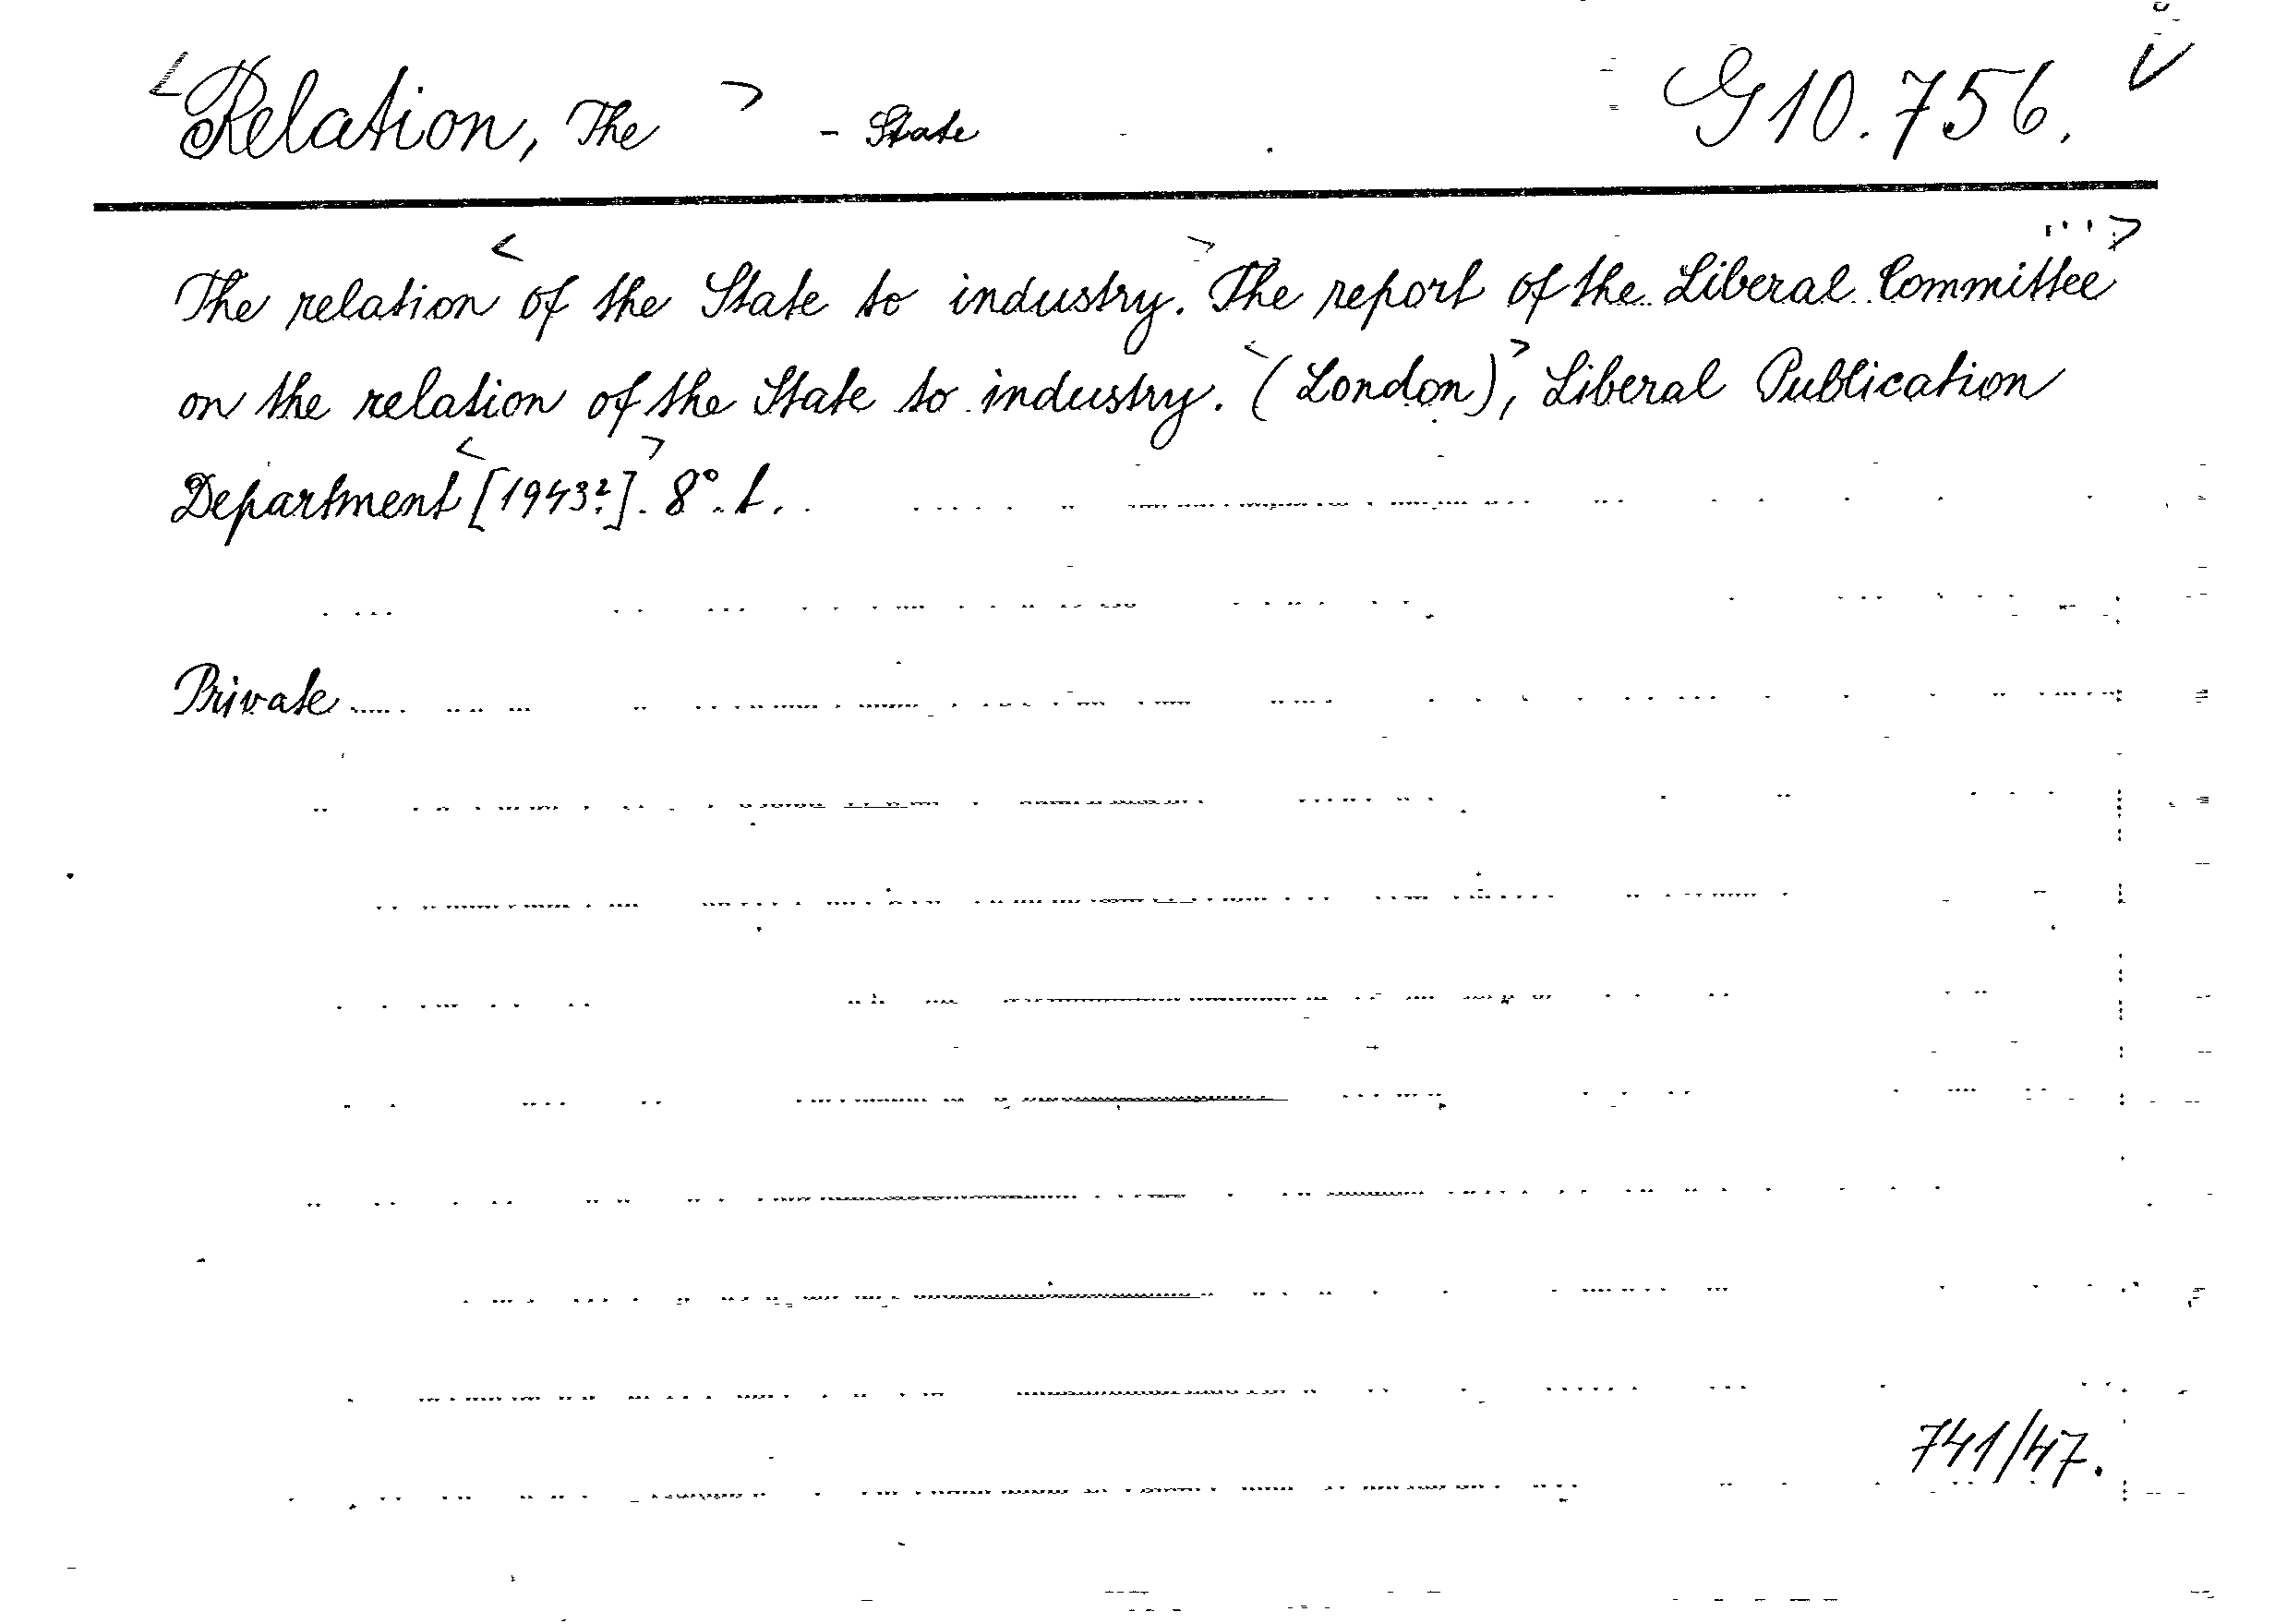 <Relation, The> - State G10.756. V
The relation <of the State to industry.> The report of the Liberal Committee ...>
on the relation of the State to industry. <(London),> Liberal Publication
Department <[1943?].> 8°. t.
Private
741/47.